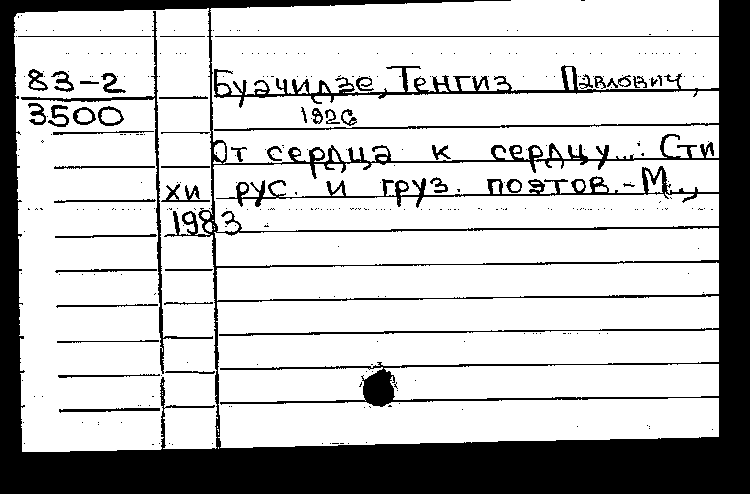 83-2
3500
Буачидзе, Тенгиз Павлович,
1926
От сердца к сердцу...: Сти
хи рус. и груз. поэтов.-М.,
1983